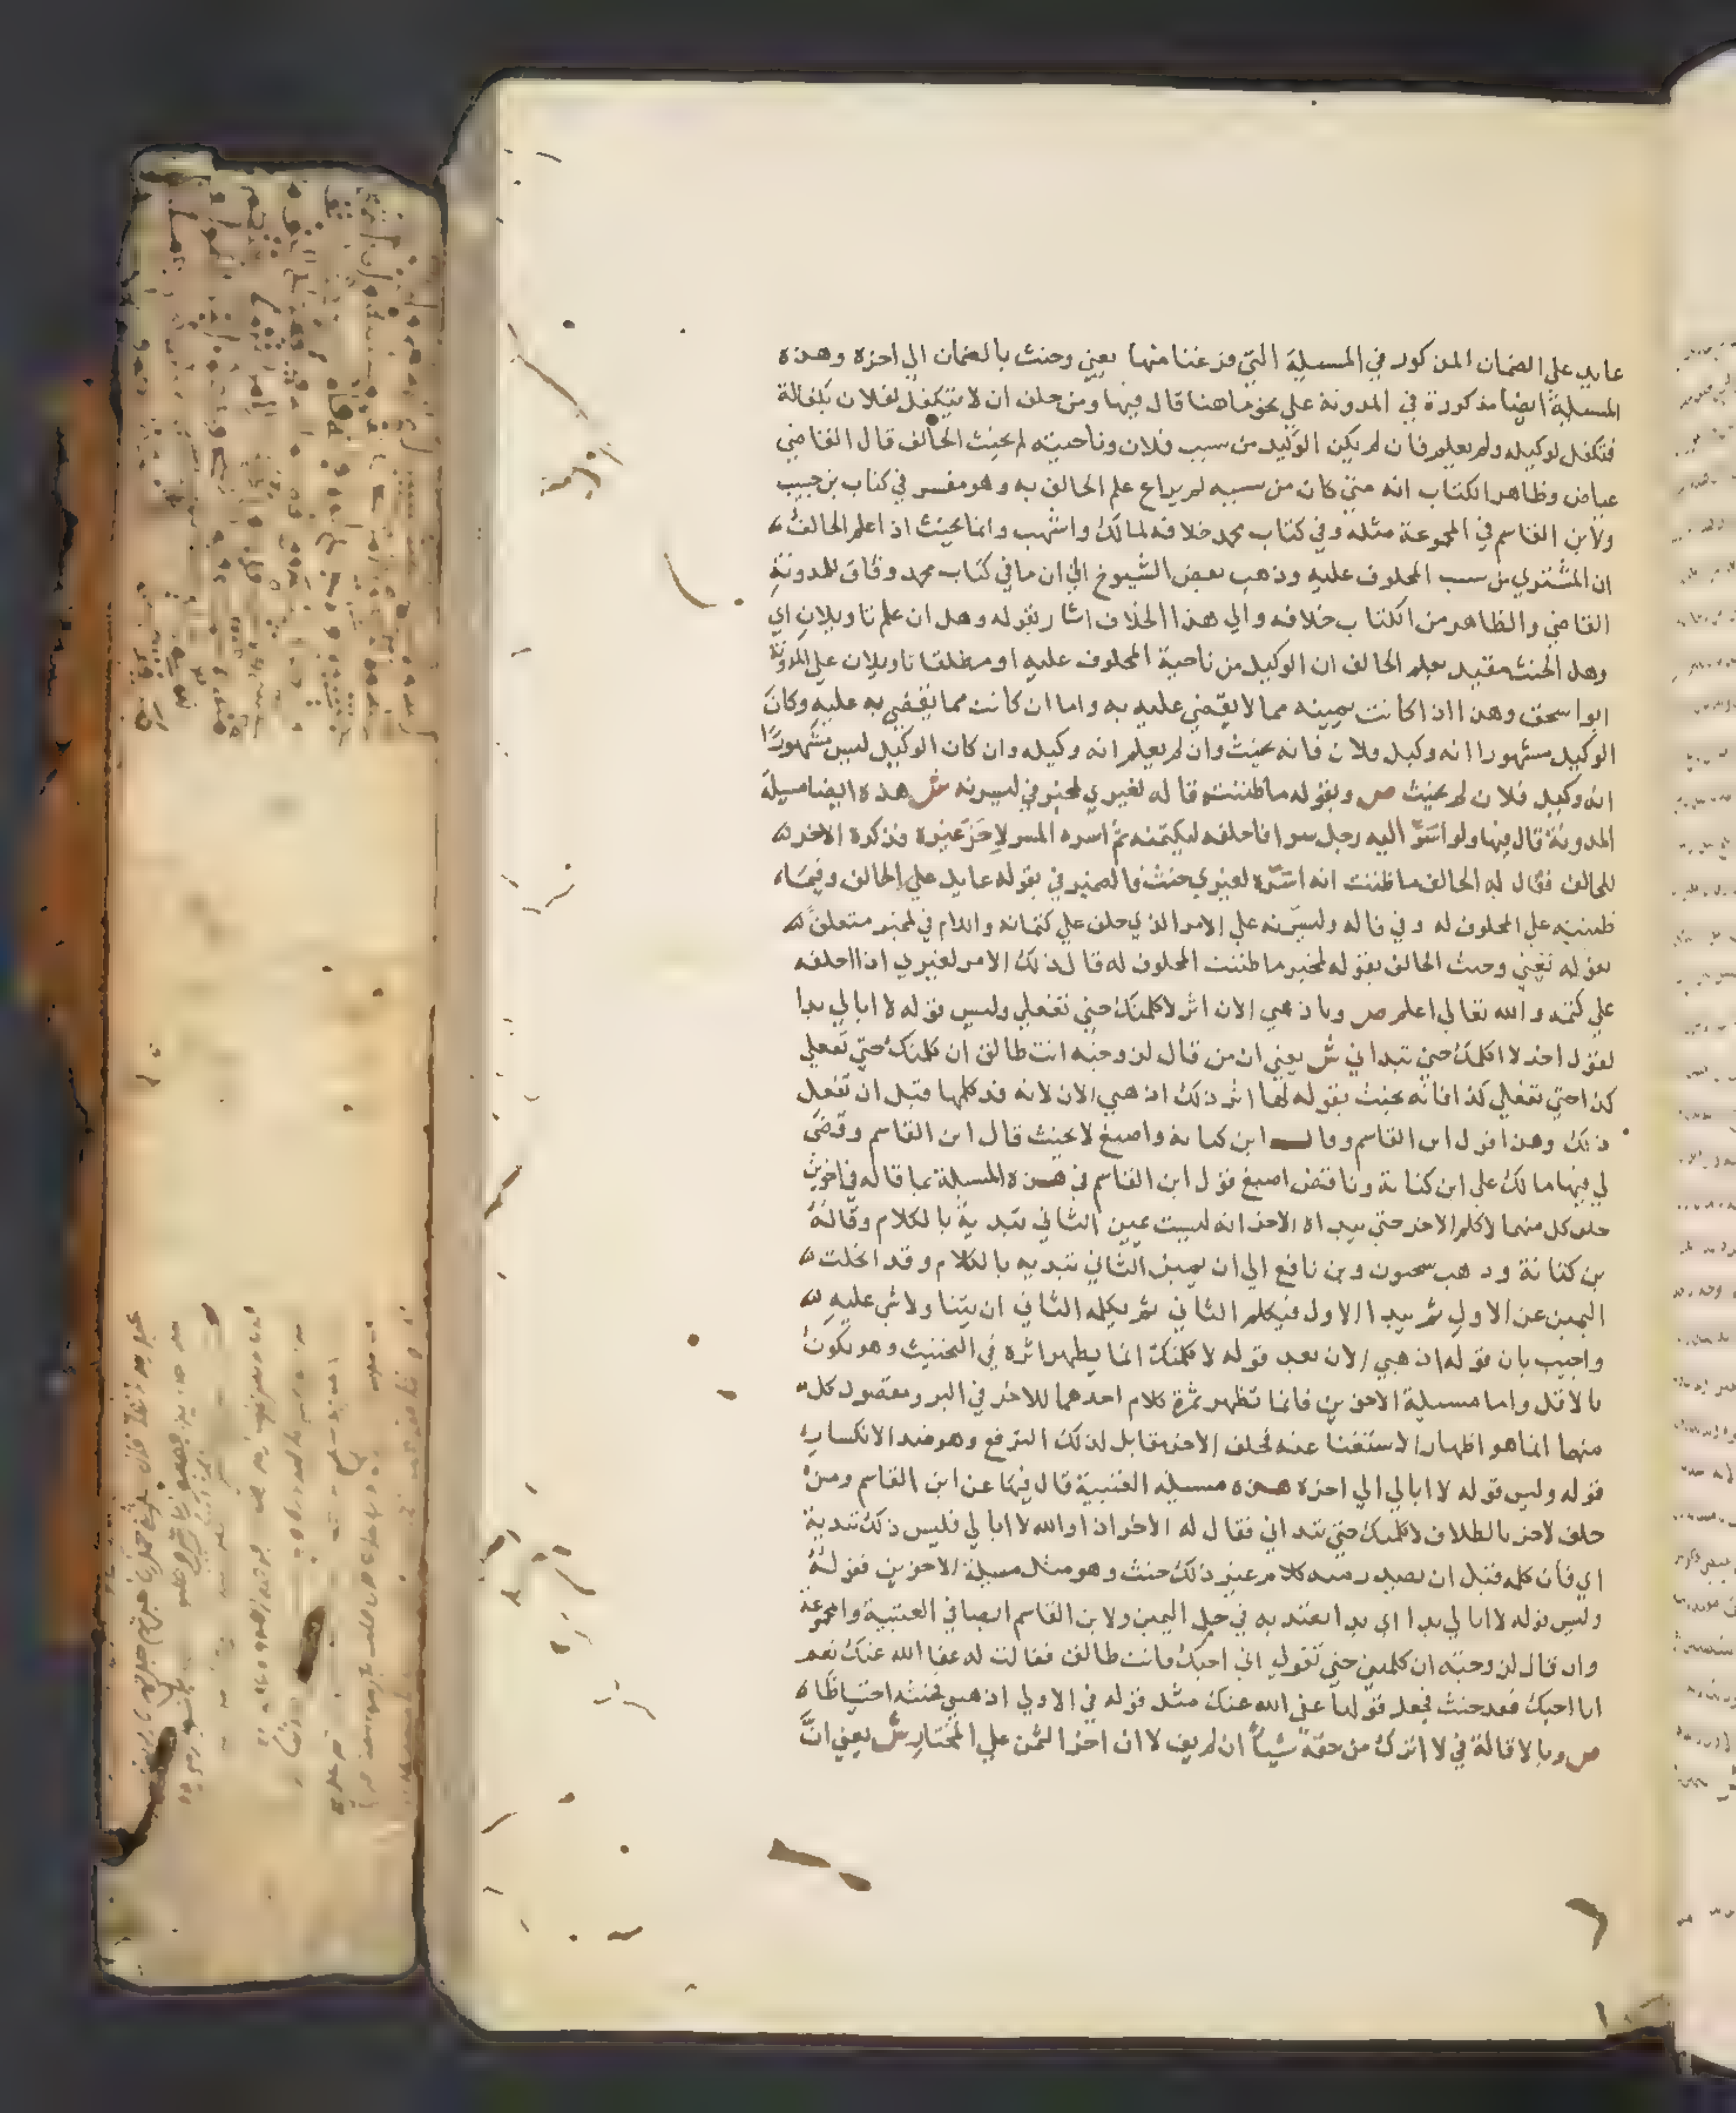 عايد علي الضمان المذكور في المسيلة التي فرغنا منها يعني وحنث بالضمان الي اخره وهذه
المسيلة ايضا مذكورة في المدونة علي نحو ما هنا قال فيها ومن حلف ان لا يتكفل لفلان بكفالة
فتكفل لوكيله ولم يعلم فان لم يكن الوكيل من سبب فلان وناحيته لم يحنث الحالف قال القاضي
عياض وظاهر الكتاب انه متي كان من سببه لم يراع علم الحالف به وهو مفسر في كتاب بن حبيب
ولابن القاسم في المجموعة مثله وفي كتاب محمد خلافه لمالك واشهب وانما يحنث اذا علم الحالف
ان المشتري من سبب المحلوف عليه وذهب بعض الشيوخ الي ان ما في كتاب محمد وفاق للمدونة
القاضي والظاهر من الكتاب خلافه والي هذا الخلاف اشار بقوله وهل ان علم تاويلان اي
وهل الحنث مقيد بعلم الحالف ان الوكيل من ناحية المحلوف عليه او مطلقا تاويلان علي المدونة
ابوا سحق وهذا اذا كانت يمينه مما لا يقضي عليه به واما ان كانت مما يقضي به عليه وكان
الوكيل مشهورا انه وكيل فلان فانه يحنث وان لم يعلم انه وكيله وان كان الوكيل ليس مشهورًا
انه وكيل فلان لم يحنث ص وبقوله ما ظننته قاله لغيري لمخبر في ليسرنه ش هذه ايضا مسيلة
المدونة قال فيها ولو اسَرّ اليه رجل سرا فاحلفه ليكتمنه ثم اسره المسر لاخَر غيره فذكره الاخر
للحالف فقال له الحالف ما ظننت انه اسَرّه لغيري حنث فالضمير في بقوله عايد علي الحالف وفي ما
ظننته علي المحلوف له وفي قاله وليسرّنه علي الامر الذي حلف علي كتمانه واللام في لمخبر متعلق
بقوله يَعني وحنث الحالف بقوله لمخبر ما ظننت المحلوف له قال ذلك الامر لغيري اذا احلفه
علي كتمه والله تعالي اعلم ص وباذهبي الان اثر لا كلمتك حتي تفعلي وليس قوله لا ابالي بدا
لقول اخر لا اكلمك حتي تبداني ش يعني ان من قال لزوجته انت طالق ان كلمتك حتي تفعلي
كذا حتي تفعلي كذا فانه يحنث بقوله لها اثر ذلك اذهبي الان لانه قد كلمها قبل ان تفعل
ذلك وهذا قول ابن القاسم وقال ابن كنانة واصبغ لا يحنث قال ابن القاسم وقضَي
لي فيها مالك علي ابن كنانة وناقض اصبغ قول ابن القاسم في هذه المسيلة بما قاله في اخوين
حلف كل منهما لا كلم الاخر حتي يبداه الاخر انه ليست يمين الثاني تبدية بالكلام وقالهُ
بن كنانة وذهب سحنون وبن نافع الي ان يمين الثاني تبديه بالكلام وقد انحلت
اليمين عن الاول ثم يبدا الاول فيكلم الثاني ثم يكلمه الثاني ان يشا ولا شي عليه
واجيب بان قوله اذهبي الان بعد قوله لا كلمتك انما يظهر اثره في التحنيث وهو يكون
بالاقل واما مسيلة الاخوين فانما تظهر ثمرة كلام احدهما للاخر في البر ومقصود كل
منهما انما هو اظهار الاستغنا عنه فحلف الاخر مقابل لذلك الترفع وهو ضد الانكسار
قوله وليس قوله لا ابالي الي اخره هذه مسيله العتبية قال فيها عن ابن القاسم ومن
حلف لاخر بالطلاق لا كلمتك حتي تبداني فقال له الاخر اذا والله لا ابالي فليس ذلك تبدية
اي فان كلمه قبل ان يصدر منه كلام غير ذلك حنث وهو مثل مسيلة الاخوين فقولهُ
وليس قوله لا ابالي بدا اي بدا يعتد به في حل اليمين ولابن القاسم ايضا في العتبية والمجموعة
وان قال لزوجته ان كلمتين حتي تقولي اني احبك فانت طالق فقالت له عفا الله عنك نعم
انا احبك فقد حنث فجعل قولها عفي الله عنك مثل قوله في الاولي اذهبي فحنثه احتياطًا
ص وبالاقالة في لا اترك من حقه شيأً ان لم يف لا ان اخر الثمن علي المختار ش يعني انّ